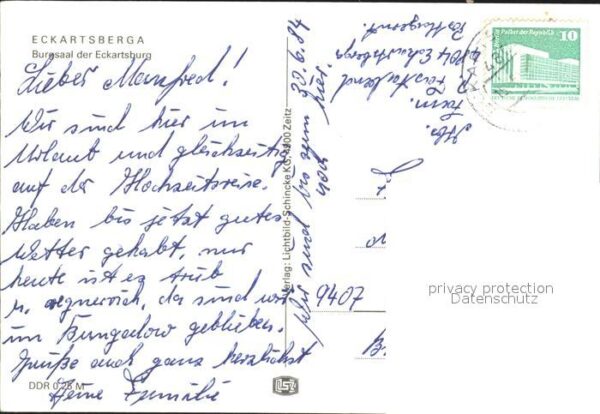 ECKARTSBERGA
Burgsaal der Eckartsburg
Lieber Manfred!
Wir sind hier im
Urlaub und gleichzeitig
auf der Hochzeitsreise.
Haben bis jetzt gutes
Wetter gehabt, nur
heute ist es trüb
u. regnerisch, da sind wir
im Bungalow geblieben.
Grüße auch ganz herzlichst
Deine Familie
DDR 0,25 M
Verlag: Lichtbild-Schincke KG, 4900 Zeitz
Wir sind bis zum 30.6.84
noch hier.
Abs.
Fam.
4804 Eckartsberga
Postlagernd
Palast der Republik
10
9407
privacy protection
Datenschutz